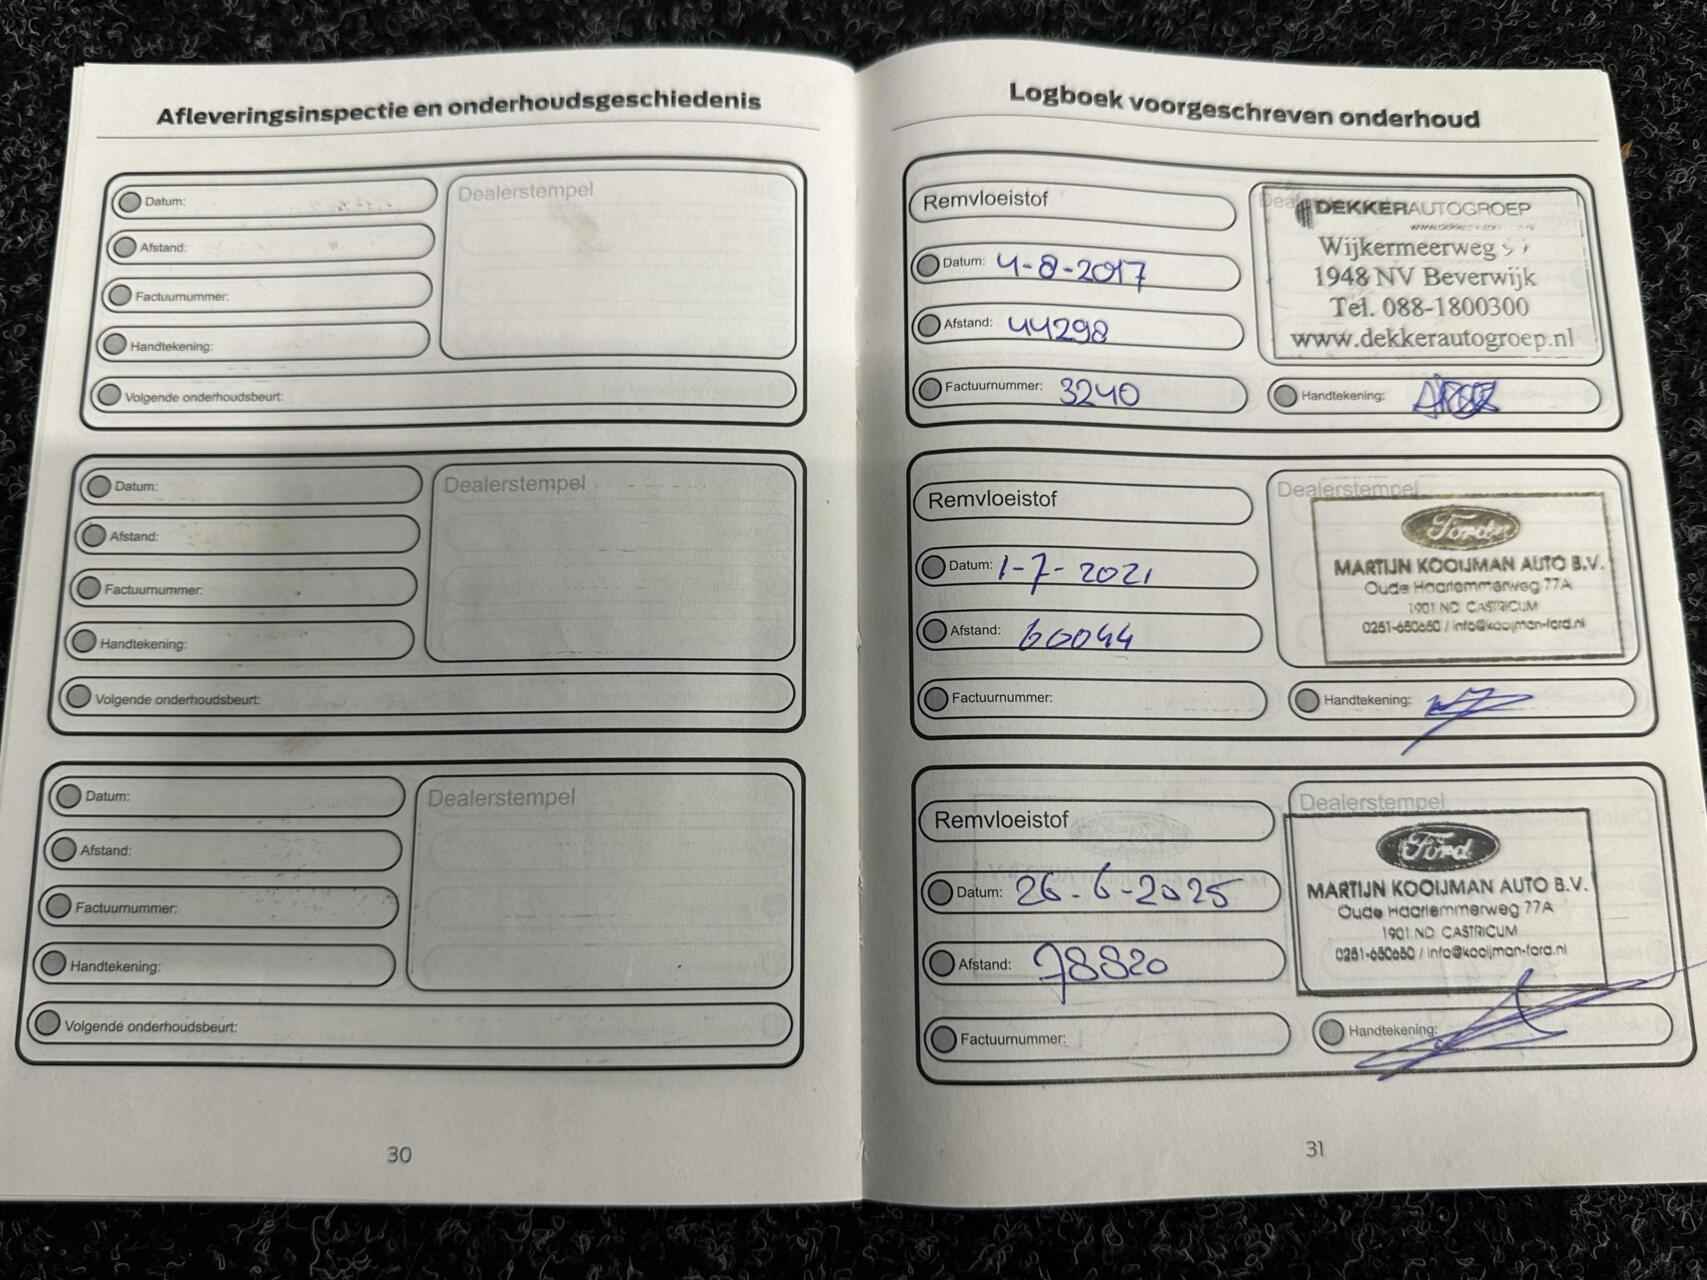 Afleveringsinspectie en onderhoudsgeschiedenis
Datum:
Afstand:
Factuurnummer:
Handtekening:
Volgende onderhoudsbeurt:
Dealerstempel
Datum:
Afstand:
Factuurnummer:
Handtekening:
Volgende onderhoudsbeurt:
Dealerstempel
Datum:
Afstand:
Factuurnummer:
Handtekening:
Volgende onderhoudsbeurt:
Dealerstempel
30
Logboek voorgeschreven onderhoud
Remvloeistof
Datum: 4-8-2017
Afstand: 44298
Factuurnummer: 3240
DEKKERAUTOGROEP
Wijkermeerweg
1948 NV Beverwijk
Tel. 088-1800300
www.dekkerautogroep.nl
Handtekening:
Remvloeistof
Datum: 1-7-2021
Afstand: 60044
Factuurnummer:
Dealerstempel
MARTIJN KOOIJMAN AUTO B.V.
Oude Haarlemmerweg 77A
1901 ND CASTRICUM
0251-650650 / info@kooijman-ford.nl
Handtekening:
Remvloeistof
Datum: 26-6-2025
Afstand: 78820
Factuurnummer:
Dealerstempel
Ford
MARTIJN KOOIJMAN AUTO B.V.
Oude Haarlemmerweg 77A
1901 ND CASTRICUM
0251-650650 / info@kooijman-ford.nl
Handtekening:
31